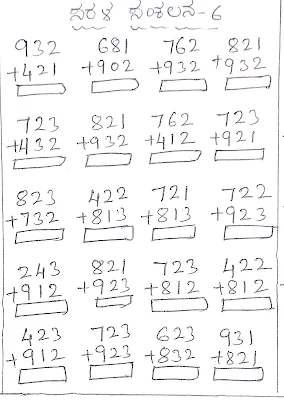 ಸರಳ ಸಂಕಲನ-6
932 681 762 821
+421 +902 +932 +932
723 821 762 723
+432 +932 +412 +921
823 422 721 722
+732 +813 +813 +923
243 821 723 422
+912 +923 +812 +812
423 723 623 931
+912 +923 +832 +821